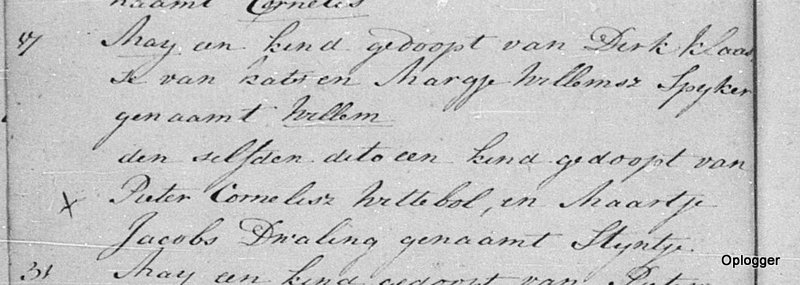 naamt Cornelis
17 May een kind gedoopt van Dirk Klaas
se van kats en Margje Willemsz Spyker
genaamt Willem
den selfden dito een kind gedoopt van
x Pieter Cornelisz Wittebol, en Maartje
Jacobs Dwaling genaamt Styntje
31 May een kind gedoopt van Pieter
Oplogger